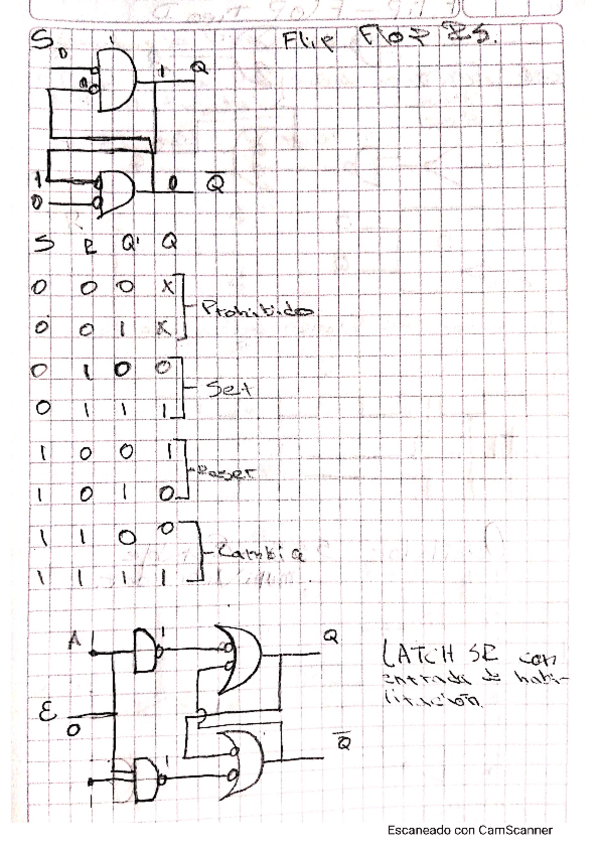 Flip Flop RS.
S 0 1
0 1 Q
1 0 Q̅
0
S R Q' Q
0 0 0 X
0 0 1 X
Prohibido
0 1 0 0
0 1 1 1
Set
1 0 0 1
1 0 1 0
Reset
1 1 0 0
1 1 1 1
Cambia
A 1 1 Q
LATCH SR con
entrada de habi-
litación
E
0
Q̅
1 1
Escaneado con CamScanner